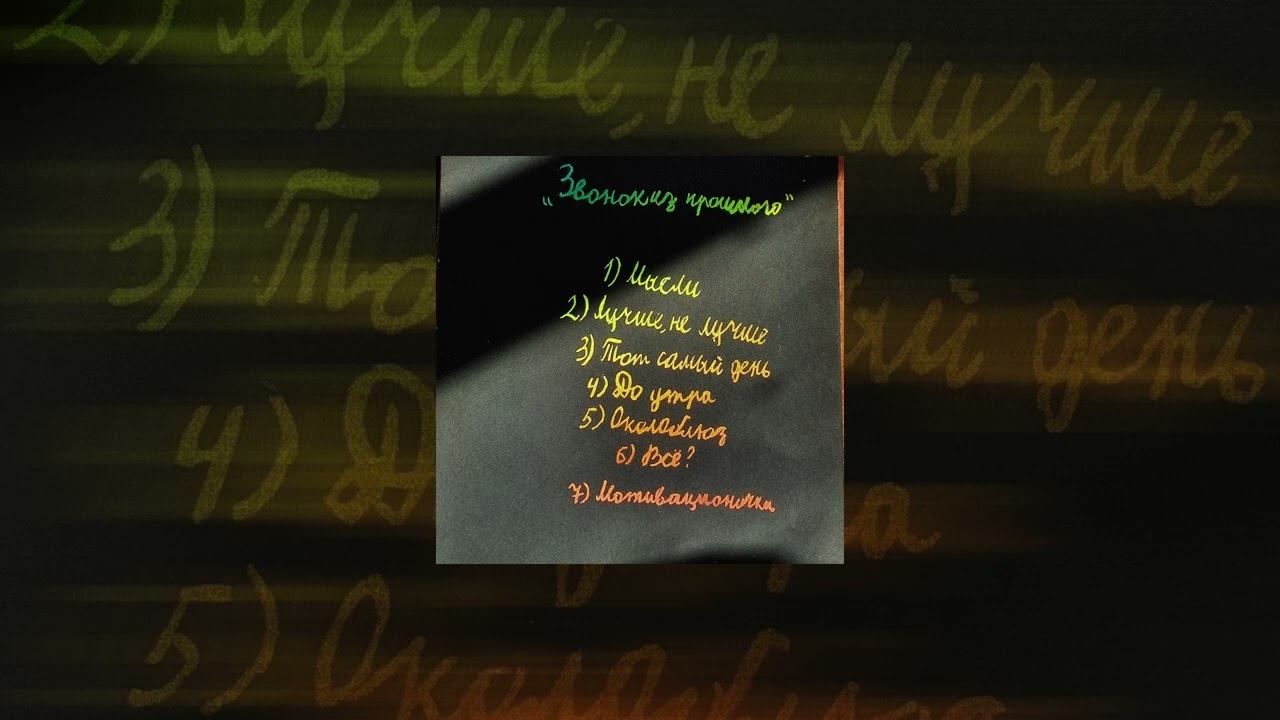 „Звонок из прошлого"
1) Мысли
2) Лучше, не лучше
3) Тот самый день
4) До утра
5) Околоблюз
6) Всё?
7) Мотивационочка